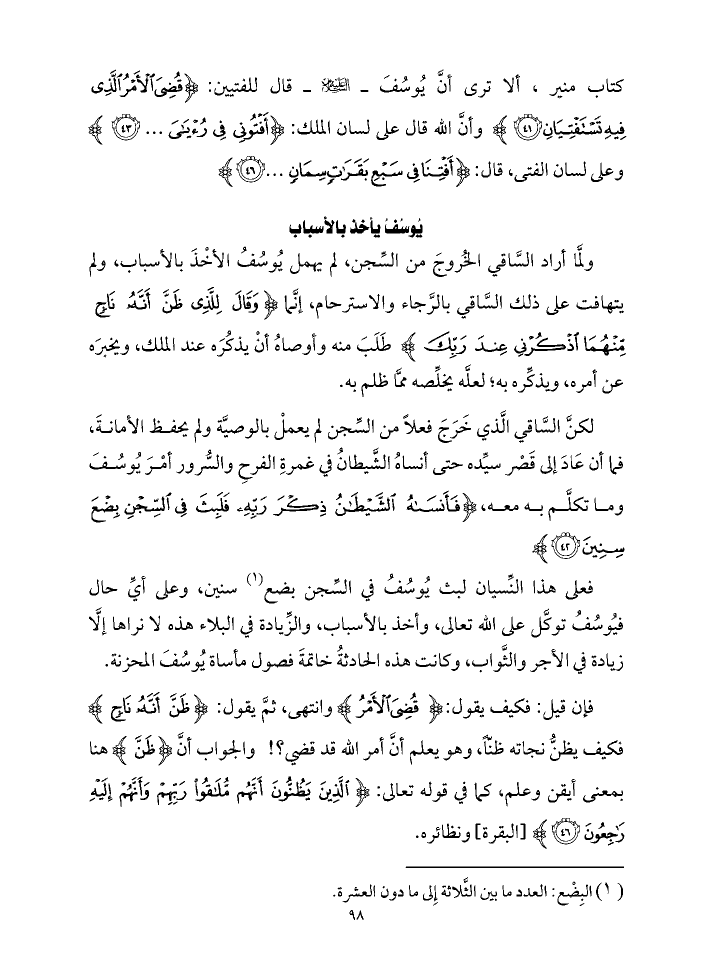 كتاب منير ، ألا ترى أنَّ يُوسُفَ ـ عليه السلام ـ قال للفتيين: ﴿قُضِيَ ٱلْأَمْرُ ٱلَّذِى
فِيهِ تَسْتَفْتِيَانِ ٤١﴾ وأنَّ الله قال على لسان الملك: ﴿أَفْتُونِي فِي رُءْيَٰيَ ... ٤٣﴾
وعلى لسان الفتى، قال: ﴿أَفْتِنَا فِي سَبْعِ بَقَرَٰتٍ سِمَانٍ ... ٤٦﴾
يُوسُفُ يأخذ بالأسباب
ولمَّا أراد السَّاقي الخُروجَ من السِّجن، لم يهمل يُوسُفُ الأخْذَ بالأسباب، ولم
يتهافت على ذلك السَّاقي بالرَّجاء والاسترحام، إنَّما ﴿وَقَالَ لِلَّذِى ظَنَّ أَنَّهُۥ نَاجٍ
مِّنْهُمَا ٱذْكُرْنِي عِندَ رَبِّكَ﴾ طَلَبَ منه وأوصاهُ أنْ يذكُرَه عند الملك، ويخبرَه
عن أمره، ويذكِّره به؛ لعلَّه يخلِّصه ممَّا ظلم به.
لكنَّ السَّاقي الَّذي خَرَجَ فعلاً من السِّجن لم يعملْ بالوصيَّة ولم يحفـظ الأمانـةَ،
فما أن عَادَ إلى قَصْر سيِّده حتى أنساهُ الشَّيطانُ في غمرةِ الفرحِ والسُّرور أمْـرَ يُوسُـفَ
ومـا تكلَّـم بـه معـه، ﴿فَأَنسَىٰهُ ٱلشَّيْطَٰنُ ذِكْرَ رَبِّهِۦ فَلَبِثَ فِي ٱلسِّجْنِ بِضْعَ
سِنِينَ ٤٢﴾
فعلى هذا النِّسيان لبث يُوسُفُ في السِّجن بضع(١) سنين، وعلى أيِّ حال
فيُوسُفُ توكَّل على الله تعالى، وأخذ بالأسباب، والزِّيادة في البلاء هذه لا نراها إلَّا
زيادة في الأجر والثَّواب، وكانت هذه الحادثةُ خاتمةَ فصول مأساة يُوسُفَ المحزنة.
فإن قيل: فكيف يقول: ﴿قُضِيَ ٱلْأَمْرُ﴾ وانتهى، ثمَّ يقول: ﴿ظَنَّ أَنَّهُۥ نَاجٍ﴾
فكيف يظنُّ نجاته ظنّاً، وهو يعلم أنَّ أمر الله قد قضي؟! والجواب أنَّ ﴿ظَنَّ﴾ هنا
بمعنى أيقن وعلم، كما في قوله تعالى: ﴿ٱلَّذِينَ يَظُنُّونَ أَنَّهُم مُّلَٰقُوا۟ رَبِّهِمْ وَأَنَّهُمْ إِلَيْهِ
رَٰجِعُونَ ٤٦﴾ [البقرة] ونظائره.
(١) البِضْع: العدد ما بين الثَّلاثة إلى ما دون العشرة.
٩٨